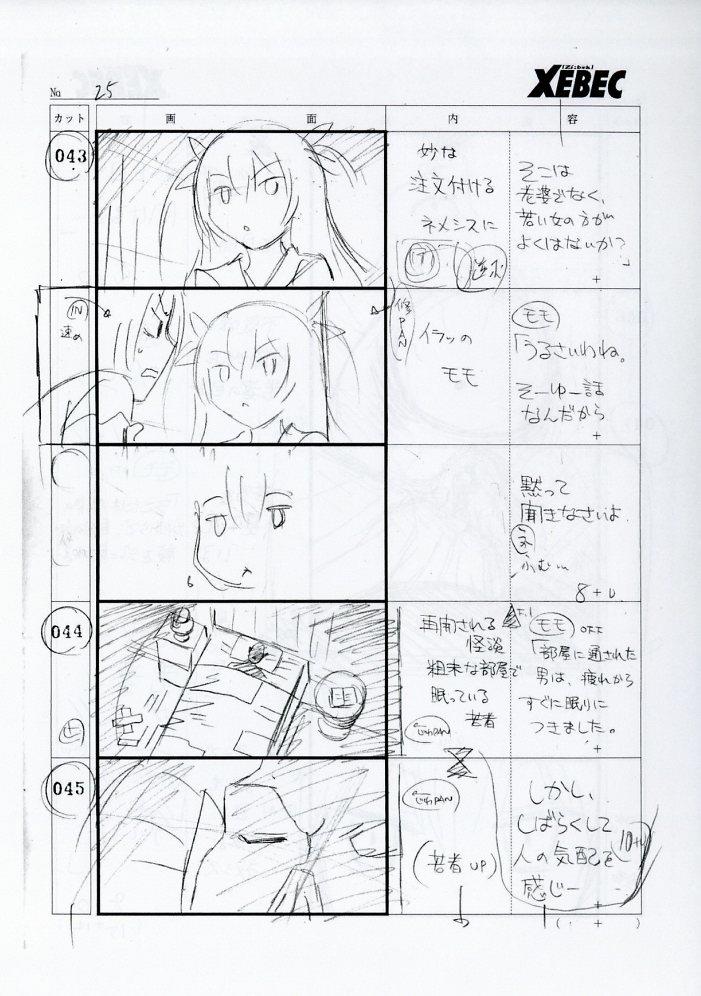 No 25
[Zi:bek]
XEBEC
カット
画 面
内 容
043
妙な
注文付ける
ネメシスに
そこは
老婆でなく、
若い女の方が
よくはないか?」
+
IN
速め
PAN
イラッの
モモ
モモ
「うるさいわね。
そーゆー話
なんだから
+
黙って
聞きなさいよ
ネ
ふむ…
8+0
044
再開される
怪談
粗末な部屋で
眠っている
若者
じわPAN
F.I
モモ OFF
「部屋に通された
男は、疲れから
すぐに眠りに
つきました。
+
045
じわPAN
(若者 UP)
しかし、
しばらくして
人の気配を
感じー
10+
( + )